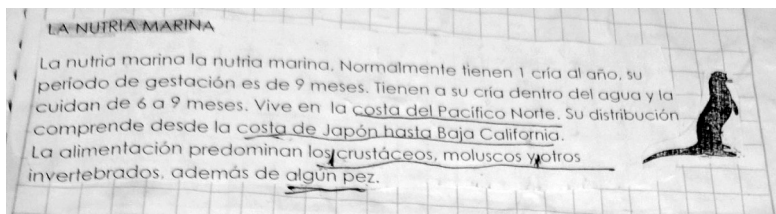 LA NUTRIA MARINA
La nutria marina la nutria marina. Normalmente tienen 1 cría al año, su
período de gestación es de 9 meses. Tienen a su cría dentro del agua y la
cuidan de 6 a 9 meses. Vive en la costa del Pacífico Norte. Su distribución
comprende desde la costa de Japón hasta Baja California.
La alimentación predominan los crustáceos, moluscos y otros
invertebrados, además de algún pez.